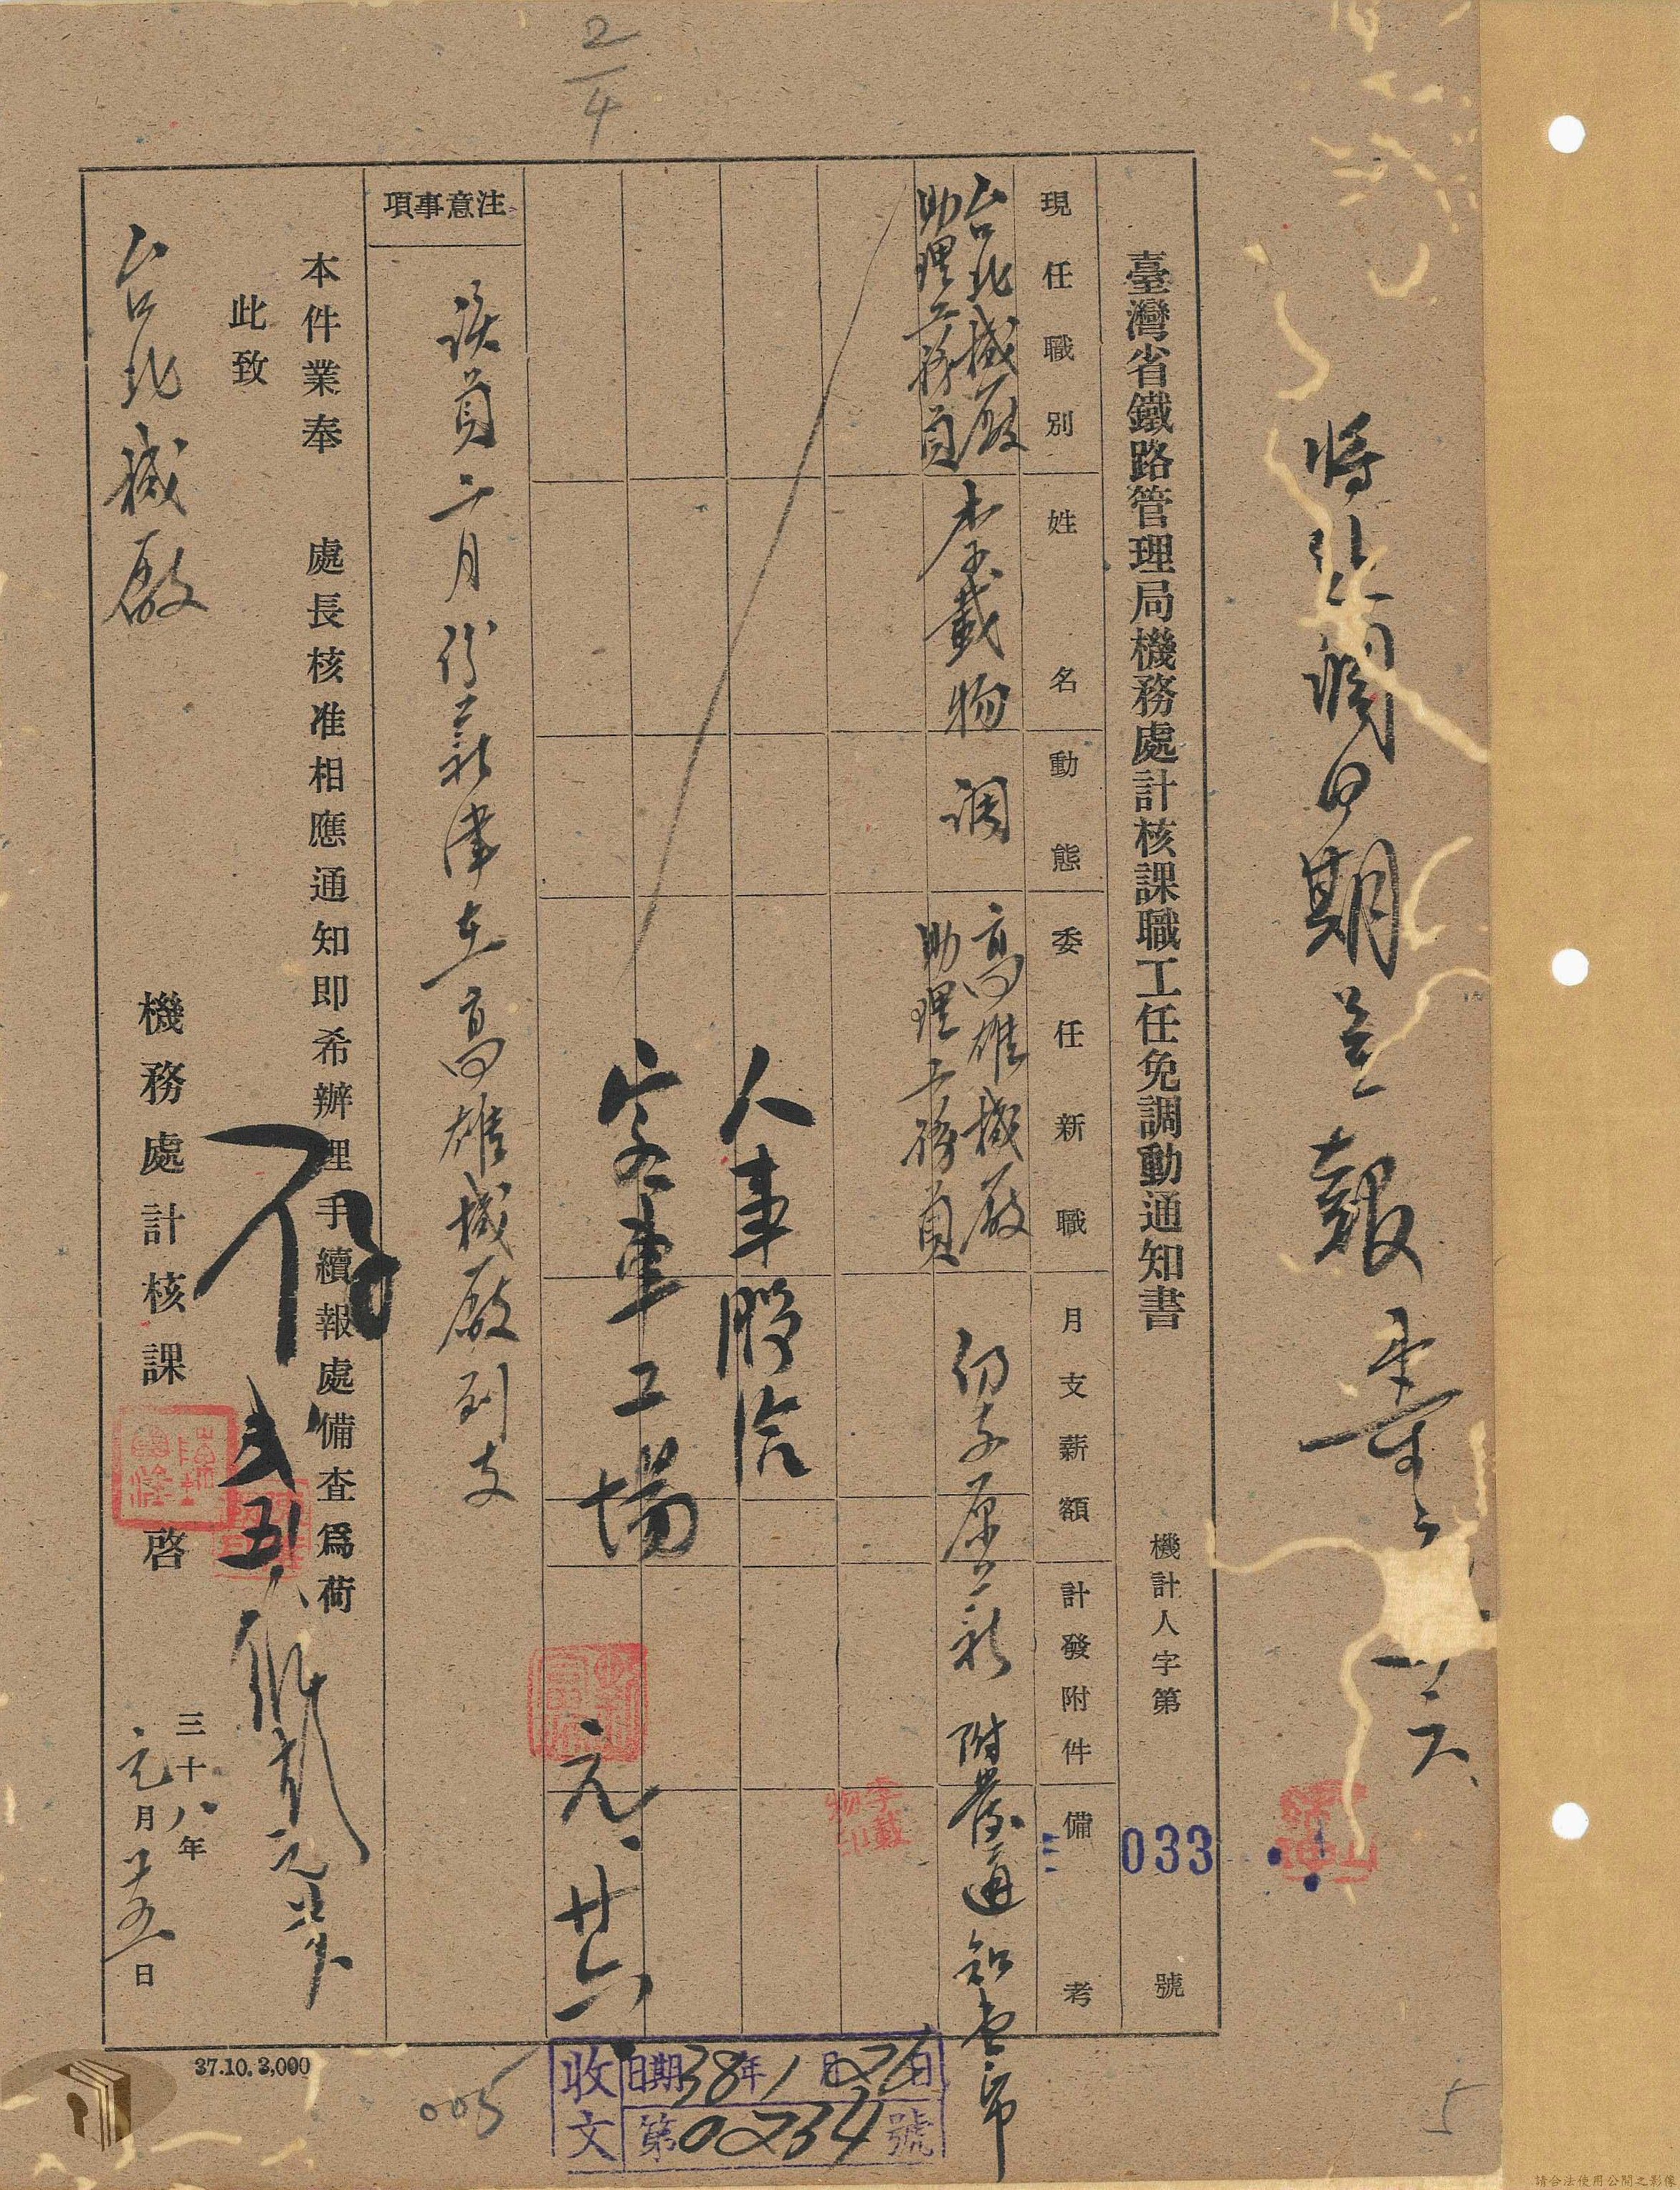 2/4
臺灣省鐵路管理局機務處計核課職工任免調動通知書
機計人字第 033 號
現任職別
姓名
動態
委任新職
月支薪額
計發附件
備考
台北機廠
助理工務員
李載物
調
高雄機廠
助理工務員
仍支原薪
附發通知書一帋
人事股洽
客車工場
元、廿六
注意事項
該員二月份薪津在高雄機廠到支
本件業奉 處長核准相應通知即希辦理手續報處備查爲荷
此致
台北機廠
機務處計核課 啓
三十八年
元月廿五日
37.10.3,000
005
收文
日期38年1月26日
第0234號
5
請合法使用公開之影像